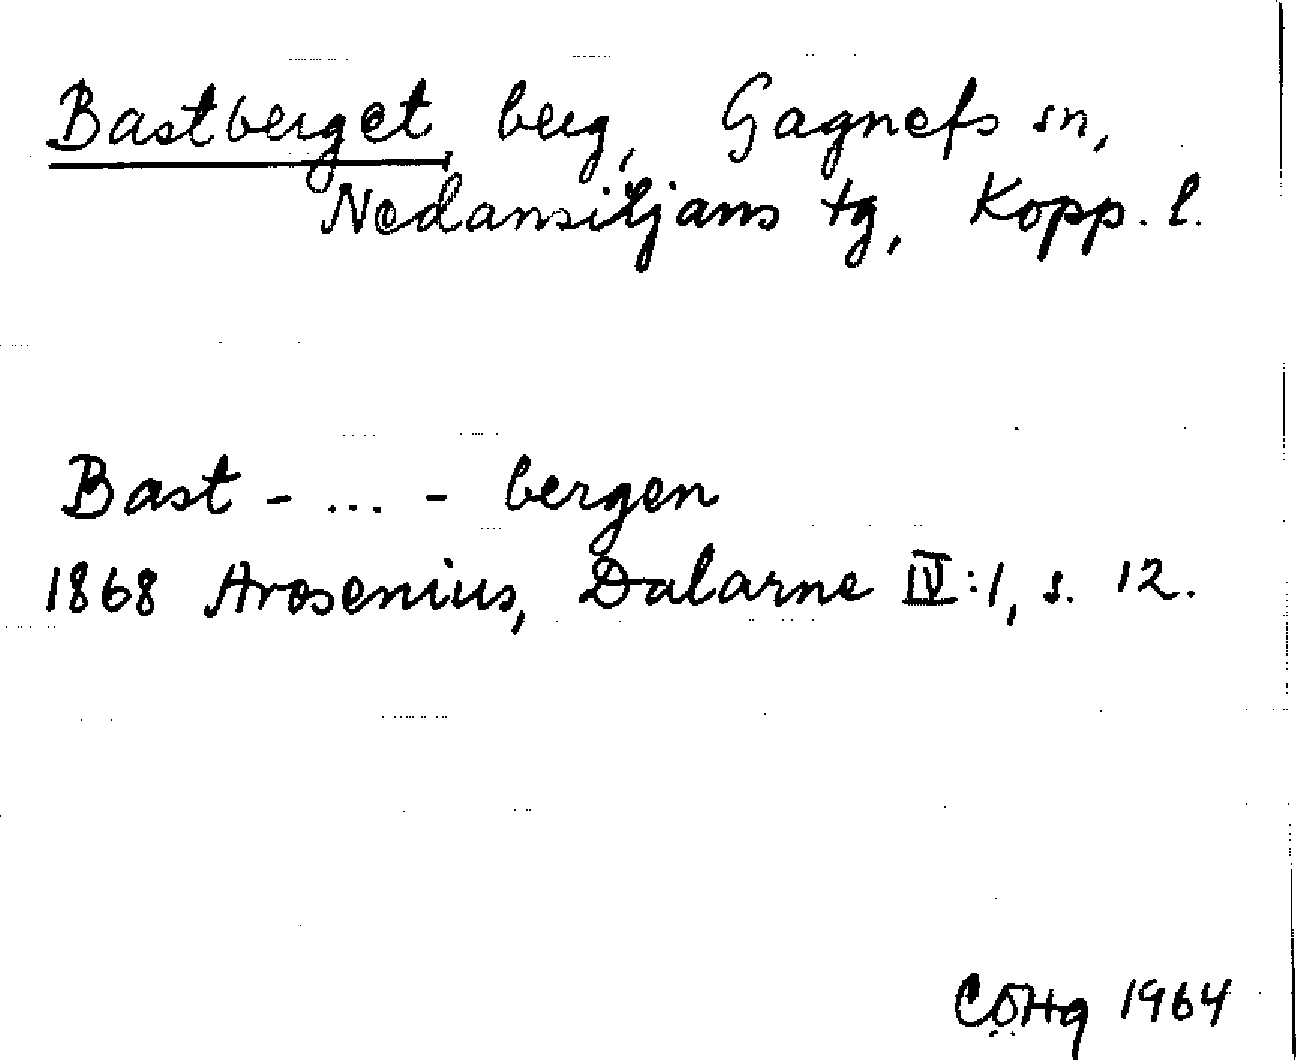 Bastberget, berg, Gagnefs sn,
Nedansiljans tg, Kopp. l.
Bast - ... - bergen
1868 Arosenius, Dalarne IV:1, s. 12.
CÖHg 1964